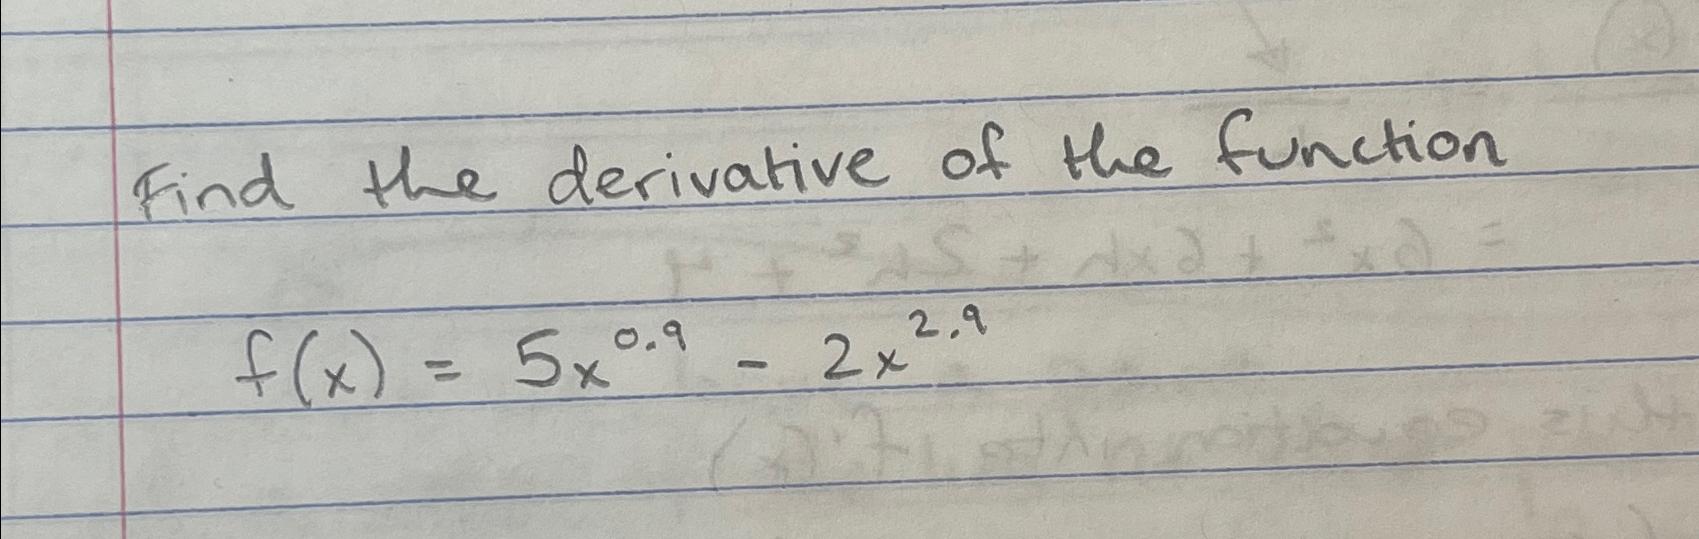 Find the derivative of the function
f(x) = 5x^0.9 - 2x^2.9